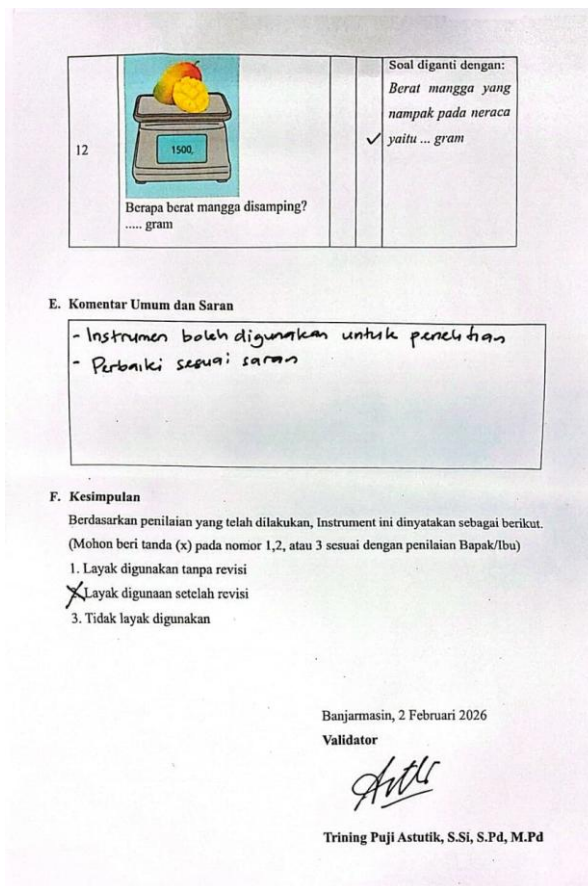 Soal diganti dengan:
Berat mangga yang
nampak pada neraca
12
1500,
✓ yaitu ... gram
Berapa berat mangga disamping?
..... gram
E. Komentar Umum dan Saran
- Instrumen boleh digunakan untuk penelitian
- Perbaiki sesuai saran
F. Kesimpulan
Berdasarkan penilaian yang telah dilakukan, Instrument ini dinyatakan sebagai berikut.
(Mohon beri tanda (x) pada nomor 1,2, atau 3 sesuai dengan penilaian Bapak/Ibu)
1. Layak digunakan tanpa revisi
X Layak digunaan setelah revisi
3. Tidak layak digunakan
Banjarmasin, 2 Februari 2026
Validator
Trining Puji Astutik, S.Si, S.Pd, M.Pd